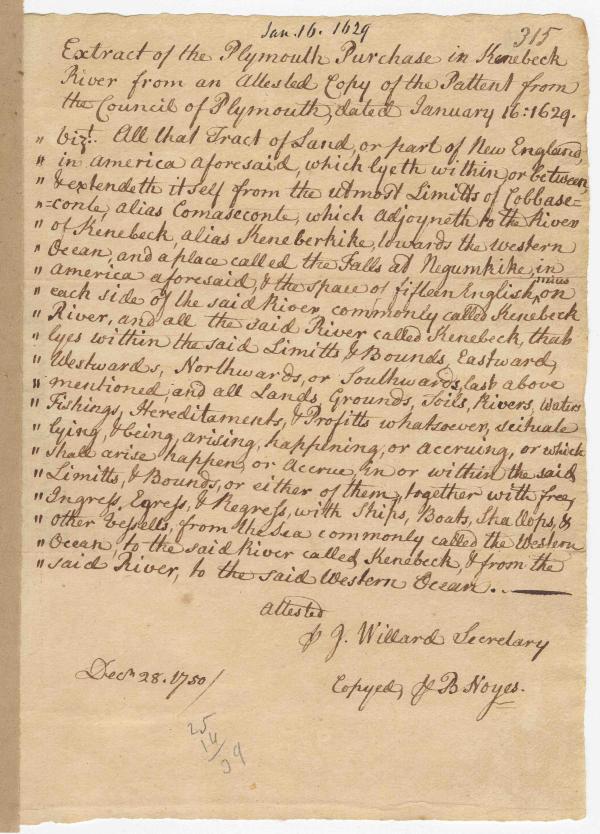 Jan. 16. 1629
315
Extract of the Plymouth Purchase in Kenebeck
River from an Attested Copy of the Pattent from
the Council of Plymouth, dated January 16: 1629.
" vizt. All that Tract of Land, or part of New England,
" in america aforesaid, which lyeth within or between,
" & extendeth itself from the utmost Limitts of Cobbase=
" =conte, alias Comaseconte, which adjoyneth to the River
" of Kenebeck, alias Keneberkike, towards the Western
" Ocean, and a place called the Falls at Negumkike, in
" america aforesaid, & the space of fifteen English miles, on
" each side of the said River, commonly called Kenebeck
" River, and all the said River called Kenebeck, that
" lyes within the said Limitts & Bounds, Eastward,
" Westwards, Northwards, or Southwards, last above
" mentioned, and all Lands, Grounds, Soils, Rivers, Waters
" Fishings, Hereditaments, & Profitts whatsoever, scituate
" lying, & being, arising, happening, or accruing, or which
" shall arise happen, or accrue, in or within the said,
" Limitts, & Bounds, or either of them, together with free,
" Ingress, Egress, & Regress, with Ships, Boats, Shallops, &
" other Vessells, from the Sea commonly called the Western
" Ocean, to the said River called, Kenebeck, & from the
" said River, to the said Western Ocean..
Attested
⅌ J. Willard Secretary
Decr. 28. 1750/
Copyed, ⅌ B Noyes.
25
14/